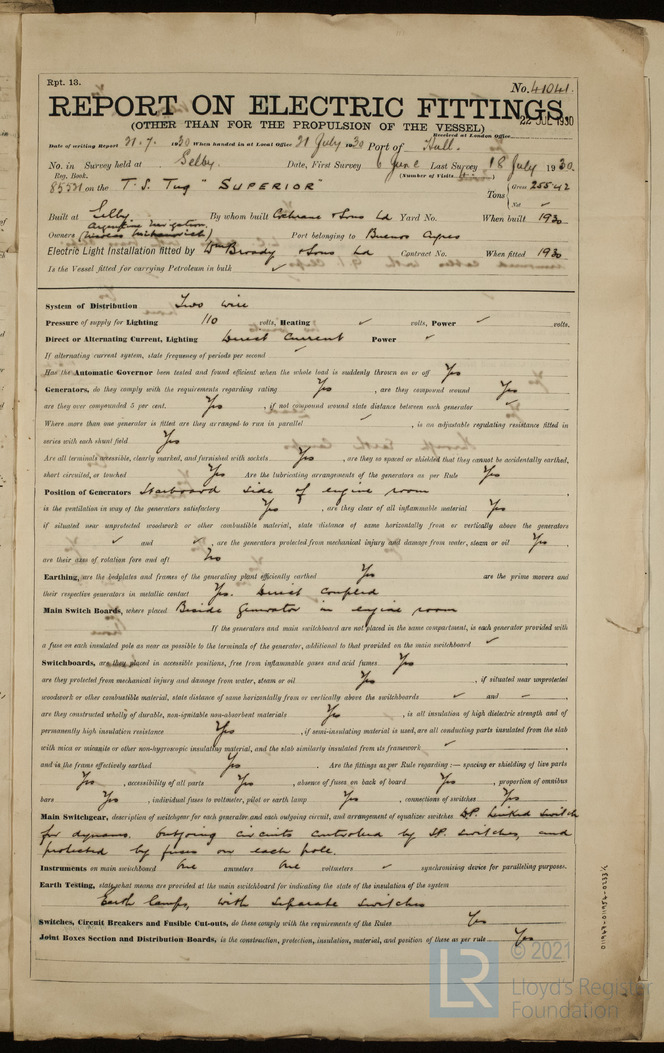 Rpt. 13.
No. 41041.
REPORT ON ELECTRIC FITTINGS.
22 JUL 1930
(OTHER THAN FOR THE PROPULSION OF THE VESSEL)
Received at London Office
Date of writing Report 21.7. 1930 When handed in at Local Office 21 July 1930 Port of Hull.
No. in Survey held at Selby. Date, First Survey 6 June Last Survey 18 July 1930.
Reg. Book. (Number of Visits
85531 on the T.S. Tug "SUPERIOR" Tons { Gross 255.42
Net ✓
Built at Selby By whom built Cochrane & Sons Ld Yard No. When built 1930
Owners Argentine Navigation (Nicolas Mihanovich) Port belonging to Buenos Ayres
Electric Light Installation fitted by Wm Broady & Sons Ld Contract No. When fitted 1930
Is the Vessel fitted for carrying Petroleum in bulk ✓
System of Distribution Two wire
Pressure of supply for Lighting 110 volts, Heating ✓ volts, Power ✓ volts.
Direct or Alternating Current, Lighting Direct Current Power ✓
If alternating current system, state frequency of periods per second
Has the Automatic Governor been tested and found efficient when the whole load is suddenly thrown on or off Yes
Generators, do they comply with the requirements regarding rating Yes , are they compound wound Yes
are they over compounded 5 per cent. Yes , if not compound wound state distance between each generator ✓
Where more than one generator is fitted are they arranged to run in parallel ✓ , is an adjustable regulating resistance fitted in
series with each shunt field Yes
Are all terminals accessible, clearly marked, and furnished with sockets Yes , are they so spaced or shielded that they cannot be accidentally earthed,
short circuited, or touched Yes Are the lubricating arrangements of the generators as per Rule Yes
Position of Generators Starboard side of engine room
is the ventilation in way of the generators satisfactory Yes , are they clear of all inflammable material Yes
if situated near unprotected woodwork or other combustible material, state distance of same horizontally from or vertically above the generators
✓ and ✓ , are the generators protected from mechanical injury and damage from water, steam or oil Yes ,
are their axes of rotation fore and aft No
Earthing, are the bedplates and frames of the generating plant efficiently earthed Yes are the prime movers and
their respective generators in metallic contact Yes. Direct Coupled
Main Switch Boards, where placed Beside generator in engine room
If the generators and main switchboard are not placed in the same compartment, is each generator provided with
a fuse on each insulated pole as near as possible to the terminals of the generator, additional to that provided on the main switchboard ✓
Switchboards, are they placed in accessible positions, free from inflammable gases and acid fumes Yes ,
are they protected from mechanical injury and damage from water, steam or oil Yes , if situated near unprotected
woodwork or other combustible material, state distance of same horizontally from or vertically above the switchboards ✓ and ✓ ,
are they constructed wholly of durable, non-ignitable non-absorbent materials Yes , is all insulation of high dielectric strength and of
permanently high insulation resistance Yes , if semi-insulating material is used, are all conducting parts insulated from the slab
with mica or micanite or other non-hygroscopic insulating material, and the slab similarly insulated from its framework ✓ ,
and is the frame effectively earthed Yes . Are the fittings as per Rule regarding :— spacing or shielding of live parts
Yes , accessibility of all parts Yes , absence of fuses on back of board Yes , proportion of omnibus
bars Yes , individual fuses to voltmeter, pilot or earth lamp Yes , connections of switches Yes
Main Switchgear, description of switchgear for each generator and each outgoing circuit, and arrangement of equalizer switches D.P. Linked Switch
for dynamo. Outgoing circuits controlled by S.P. switches, and
protected by fuses on each pole.
Instruments on main switchboard One ammeters One voltmeters ✓ synchronising device for paralleling purposes.
Earth Testing, state what means are provided at the main switchboard for indicating the state of the insulation of the system
Earth lamps, with separate switches
Switches, Circuit Breakers and Fusible Cut-outs, do these comply with the requirements of the Rules Yes
Joint Boxes Section and Distribution Boards, is the construction, protection, insulation, material, and position of these as per rule Yes
© 2021
LR
Lloyd's Register
Foundation